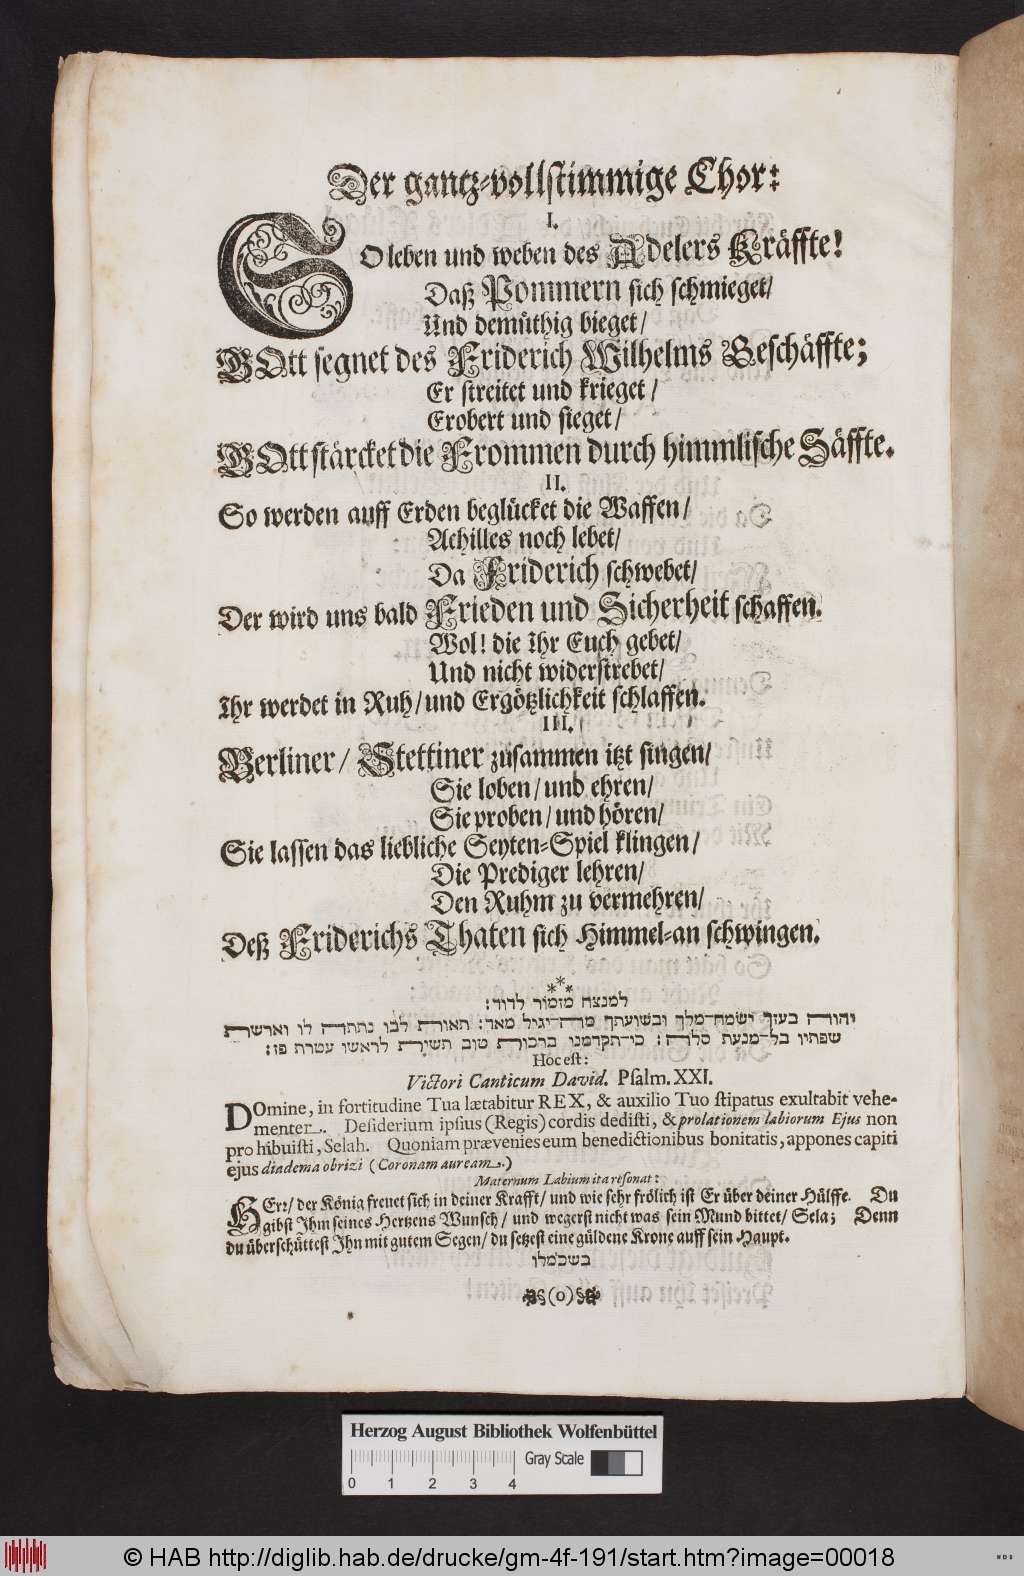 Der gantz-vollstimmige Chor:
I.
SO leben und weben des Adelers Kräffte!
Daß Pommern sich schmieget/
Und demüthig bieget/
GOtt segnet des Friderich Wilhelms Geschäffte;
Er streitet und krieget/
Erobert und sieget/
GOtt stärcket die Frommen durch himmlische Säffte.
II.
So werden auff Erden beglücket die Waffen/
Achilles noch lebet/
Da Friderich schwebet/
Der wird uns bald Frieden und Sicherheit schaffen.
Wol! die Ihr Euch gebet/
Und nicht widerstrebet/
Ihr werdet in Ruh/und Ergötzlichkeit schlaffen.
III.
Berliner/ Stettiner zusammen itzt singen/
Sie loben/und ehren/
Sie proben/und hören/
Sie lassen das liebliche Seyten-Spiel klingen/
Die Prediger lehren/
Den Ruhm zu vermehren/
Deß Friderichs Thaten sich Himmel-an schwingen.
***
למנצח מזמור לדוד:
יהוה בעזך ישמח־מלך ובשועתך מה־יגיל מאד: תאות לבו נתתה לו וארשת
שפתיו בל־מנעת סלה: כי־תקדמנו ברכות טוב תשית לראשו עטרת פז:
Hoc est:
Victori Canticum David. Psalm. XXI.
DOmine, in fortitudine Tua lætabitur REX, & auxilio Tuo stipatus exultabit vehe-
menter. Desiderium ipsius (Regis) cordis dedisti, & prolationem labiorum Ejus non
prohibuisti, Selah. Quoniam prævenies eum benedictionibus bonitatis, appones capiti
ejus diadema obrizi (Coronam auream.)
Maternum Labium ita resonat:
HErr/ der König freuet sich in deiner Krafft/ und wie sehr frölich ist Er über deiner Hülffe. Du
gibst Ihm seines Hertzens Wunsch/ und wegerst nicht was sein Mund bittet/ Sela; Denn
du überschüttest Ihn mit gutem Segen/ du setzest eine güldene Krone auff sein Haupt.
בשכמלו
§(o)§
Herzog August Bibliothek Wolfenbüttel
Gray Scale
0 1 2 3 4
© HAB http://diglib.hab.de/drucke/gm-4f-191/start.htm?image=00018